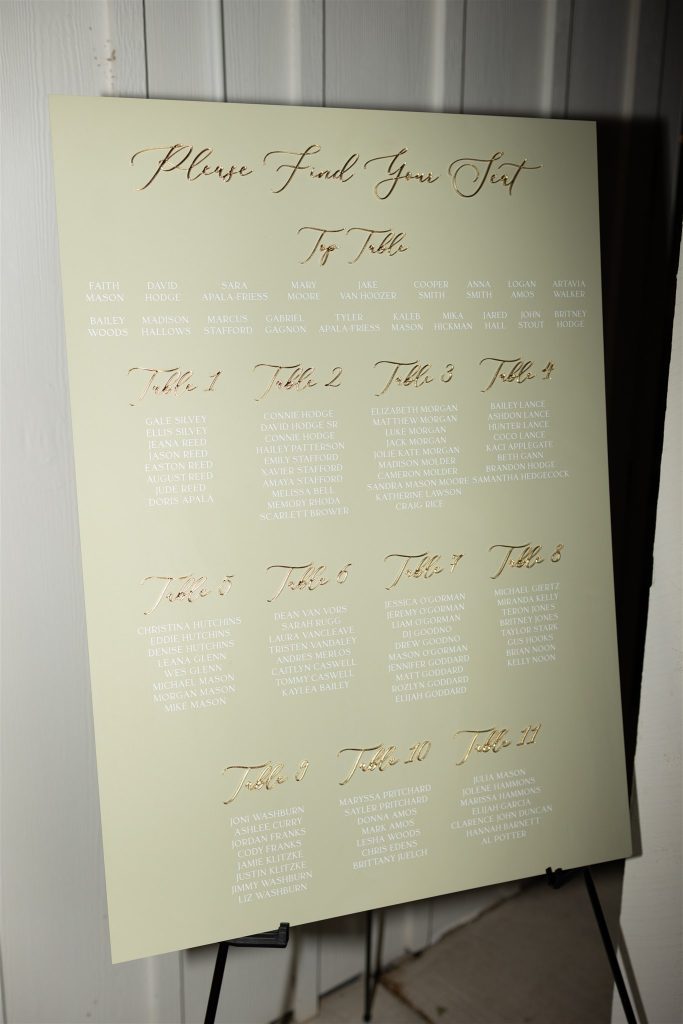 Please Find Your Seat
Top Table
FAITH MASON
DAVID HODGE
SARA APALA-FRIESS
MARY MOORE
JAKE VAN HOOZER
COOPER SMITH
ANNA SMITH
LOGAN AMOS
ARTAVIA WALKER
BAILEY WOODS
MADISON HALLOWS
MARCUS STAFFORD
GABRIEL GAGNON
TYLER APALA-FRIESS
KALEB MASON
MIKA HICKMAN
JARED HALL
JOHN STOUT
BRITNEY HODGE
Table 1
GALE SILVEY
ELLIS SILVEY
JEANA REED
JASON REED
EASTON REED
AUGUST REED
JUDE REED
DORIS APALA
Table 2
CONNIE HODGE
DAVID HODGE SR
CONNIE HODGE
HAILEY PATTERSON
EMILY STAFFORD
XAVIER STAFFORD
AMAYA STAFFORD
MELISSA BELL
MEMORY RHODA
SCARLETT BROWER
Table 3
ELIZABETH MORGAN
MATTHEW MORGAN
LUKE MORGAN
JACK MORGAN
JOLIE KATE MORGAN
MADISON MOLDER
CAMERON MOLDER
SANDRA MASON MOORE
KATHERINE LAWSON
CRAIG RICE
Table 4
BAILEY LANCE
ASHDON LANCE
HUNTER LANCE
COCO LANCE
KACI APPLEGATE
BETH GANN
BRANDON HODGE
SAMANTHA HEDGECOCK
Table 5
CHRISTINA HUTCHINS
EDDIE HUTCHINS
DENISE HUTCHINS
LEANA GLENN
WES GLENN
MICHAEL MASON
MORGAN MASON
MIKE MASON
Table 6
DEAN VAN VORS
SARAH RUGG
LAURA VANCLEAVE
TRISTEN VANDALEY
ANDRES MERLOS
CAITLYN CASWELL
TOMMY CASWELL
KAYLEA BAILEY
Table 7
JESSICA O'GORMAN
JEREMY O'GORMAN
LIAM O'GORMAN
DJ GOODNO
DREW GOODNO
MASON O'GORMAN
JENNIFER GODDARD
MATT GODDARD
ROZLYN GODDARD
ELIJAH GODDARD
Table 8
MICHAEL GIERTZ
MIRANDA KELLY
TERON JONES
BRITNEY JONES
TAYLOR STARK
GUS HOOKS
BRIAN NOON
KELLY NOON
Table 9
JONI WASHBURN
ASHLEE CURRY
JORDAN FRANKS
CODY FRANKS
JAMIE KLITZKE
JUSTIN KLITZKE
JIMMY WASHBURN
LIZ WASHBURN
Table 10
MARYSSA PRITCHARD
SAYLER PRITCHARD
DONNA AMOS
MARK AMOS
LESHA WOODS
CHRIS EDENS
BRITTANY JUELCH
Table 11
JULIA MASON
JOLENE HAMMONS
MARISSA HAMMONS
ELIJAH GARCIA
CLARENCE JOHN DUNCAN
HANNAH BARNETT
AL POTTER